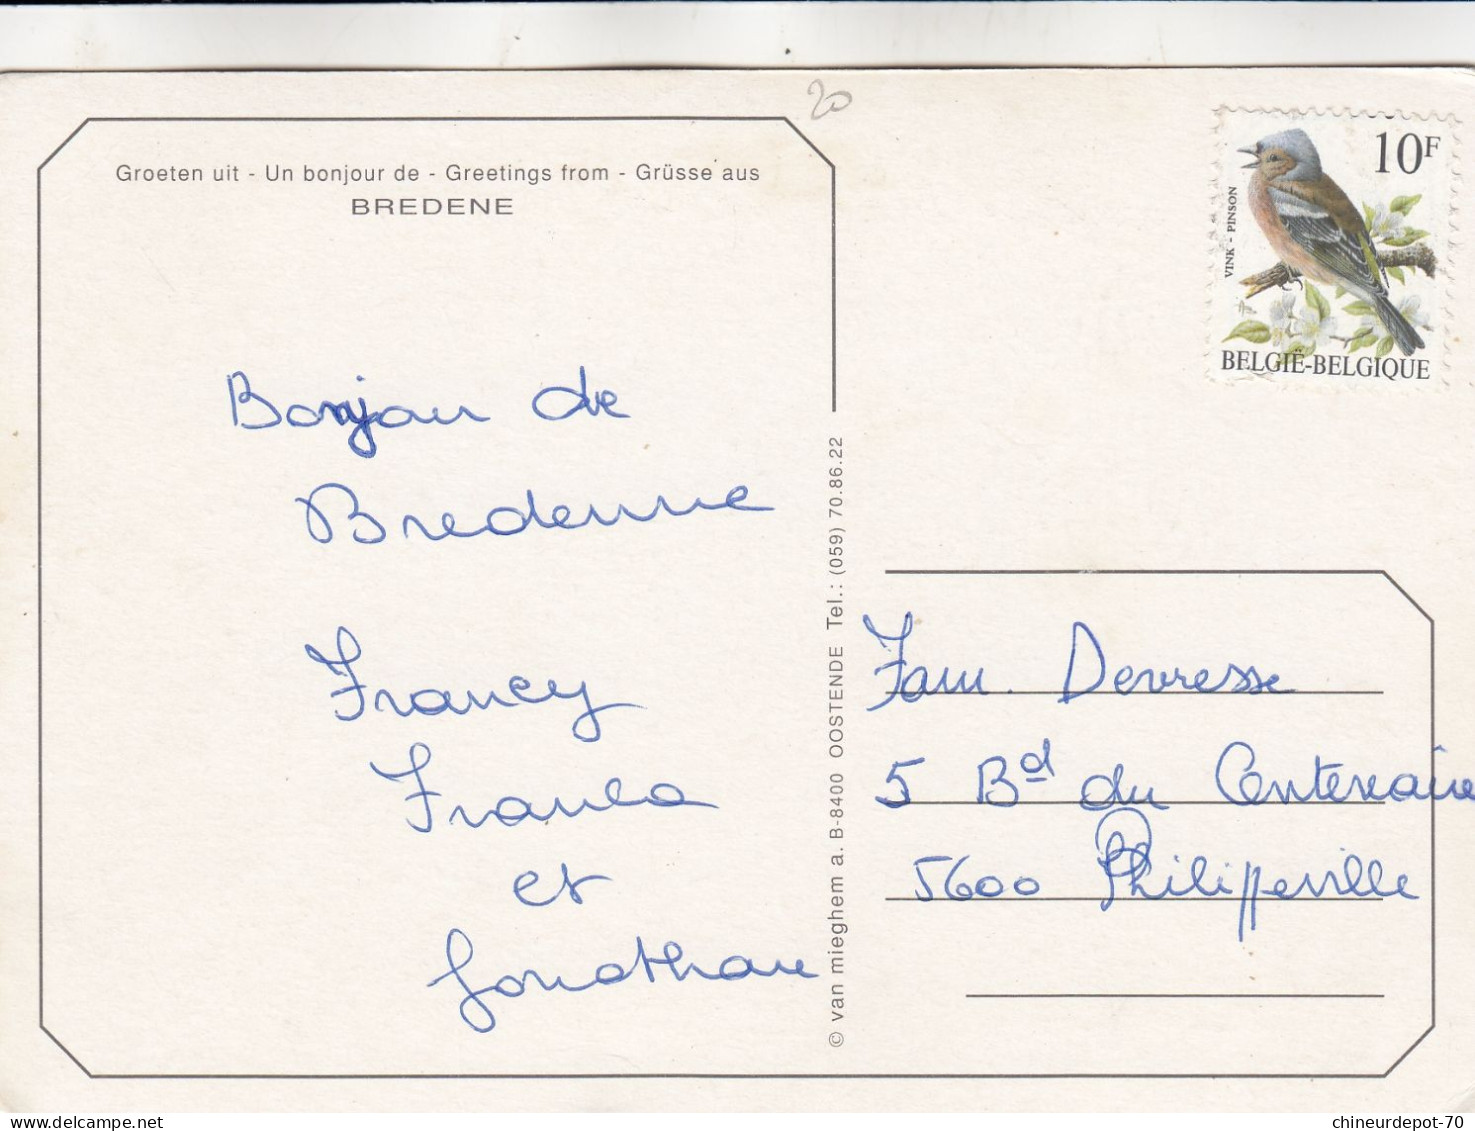 20
Groeten uit - Un bonjour de - Greetings from - Grüsse aus
BREDENE
Bonjour de
Bredenne
Francy
Franca
et
Jonathan
© van mieghem a. B-8400 OOSTENDE Tel.: (059) 70.86.22
10F
VINK - PINSON
BELGIË-BELGIQUE
Fam. Devresse
5 Bd du Centenaire
5600 Philippeville
chineurdepot-70